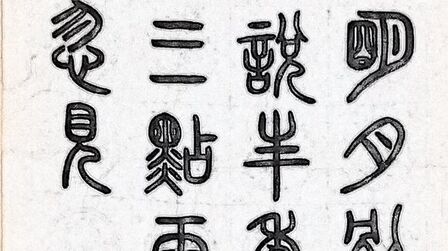 明月別
說丰年
三點雨
忽見